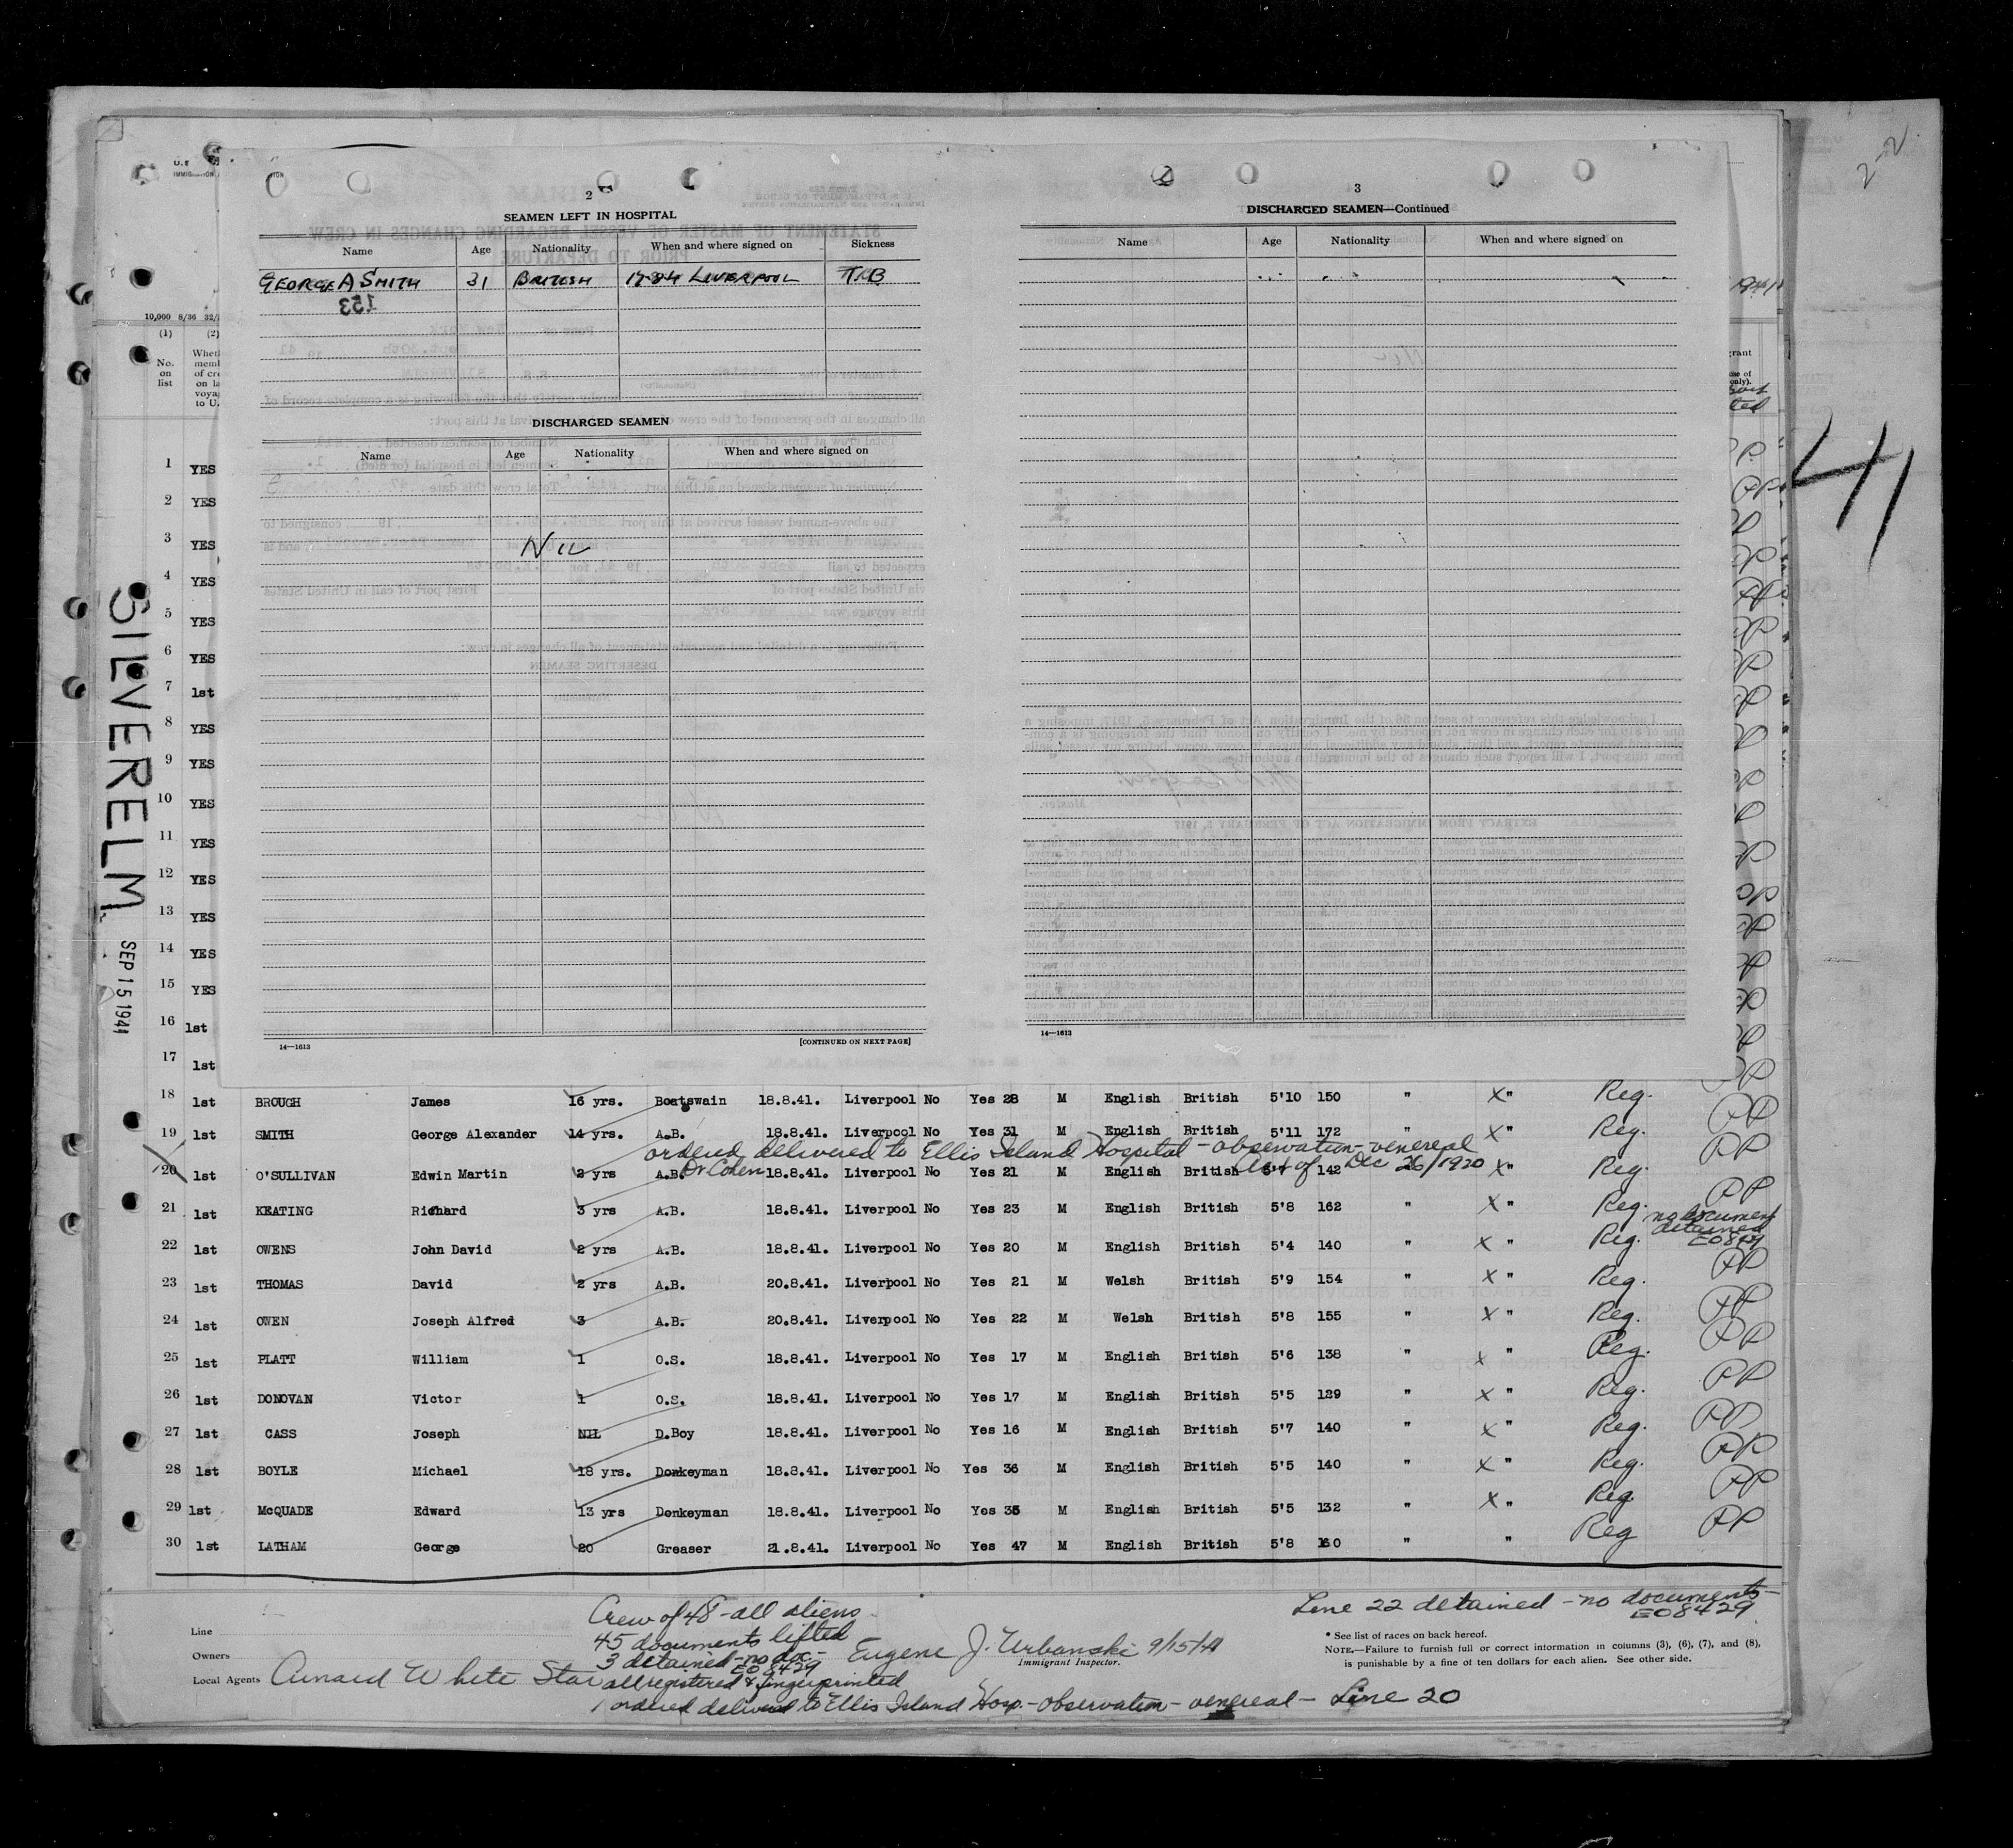 2
SEAMEN LEFT IN HOSPITAL
Name Age Nationality When and where signed on Sickness
GEORGE A SMITH 31 BRITISH LIVERPOOL T.B
153
DISCHARGED SEAMEN
Name Age Nationality When and where signed on
NIL
14—1613 [CONTINUED ON NEXT PAGE]
3
DISCHARGED SEAMEN—Continued
Name Age Nationality When and where signed on
14—1613
2-2
41
SILVERELM
SEP 15 1941
10,000 8/36
(1) (2)
No. on list
1 YES
2 YES
3 YES
4 YES
5 YES
6 YES
7 1st
8 YES
9 YES
10 YES
11 YES
12 YES
13 YES
14 YES
15 YES
16 1st
17 1st
18 1st BROUGH James 16 yrs. Boatswain 18.8.41. Liverpool No Yes 28 M English British 5'10 150 " X" Reg. PP
19 1st SMITH George Alexander 14 yrs. A.B. 18.8.41. Liverpool No Yes 31 M English British 5'11 172 " X" Reg. PP
ordered delivered to Ellis Island Hospital - observation - venereal
Dr Cohen Act of Dec 26/1920
20 1st O'SULLIVAN Edwin Martin 2 yrs A.B. 18.8.41. Liverpool No Yes 21 M English British 142 " X" Reg.
21 1st KEATING Richard 3 yrs A.B. 18.8.41. Liverpool No Yes 23 M English British 5'8 162 " X" Reg. PP
22 1st OWENS John David 2 yrs A.B. 18.8.41. Liverpool No Yes 20 M English British 5'4 140 " X " Reg. no document detained E08429
23 1st THOMAS David 2 yrs A.B. 20.8.41. Liverpool No Yes 21 M Welsh British 5'9 154 " X " Reg. PP
24 1st OWEN Joseph Alfred 3 A.B. 20.8.41. Liverpool No Yes 22 M Welsh British 5'8 155 " X " Reg. PP
25 1st PLATT William 1 O.S. 18.8.41. Liverpool No Yes 17 M English British 5'6 138 " X " Reg. PP
26 1st DONOVAN Victor 1 O.S. 18.8.41. Liverpool No Yes 17 M English British 5'5 129 " X " Reg. PP
27 1st CASS Joseph NIL D.Boy 18.8.41. Liverpool No Yes 16 M English British 5'7 140 " X " Reg. PP
28 1st BOYLE Michael 18 yrs. Donkeyman 18.8.41. Liverpool No Yes 36 M English British 5'5 140 " X " Reg. PP
29 1st McQUADE Edward 13 yrs Donkeyman 18.8.41. Liverpool No Yes 35 M English British 5'5 132 " X " Reg PP
30 1st LATHAM George 20 Greaser 21.8.41. Liverpool No Yes 47 M English British 5'8 160 " " Reg PP
Line
Owners
Local Agents Cunard White Star
Crew of 48 - all aliens
45 documents lifted
3 detained - no doc - E08429
all registered & fingerprinted
1 ordered delivered to Ellis Island Hosp. - observation - venereal - Line 20
Eugene J. Urbanski 9/15/41
Immigrant Inspector.
Line 22 detained - no documents - E08429
* See list of races on back hereof.
NOTE.—Failure to furnish full or correct information in columns (3), (6), (7), and (8),
is punishable by a fine of ten dollars for each alien. See other side.